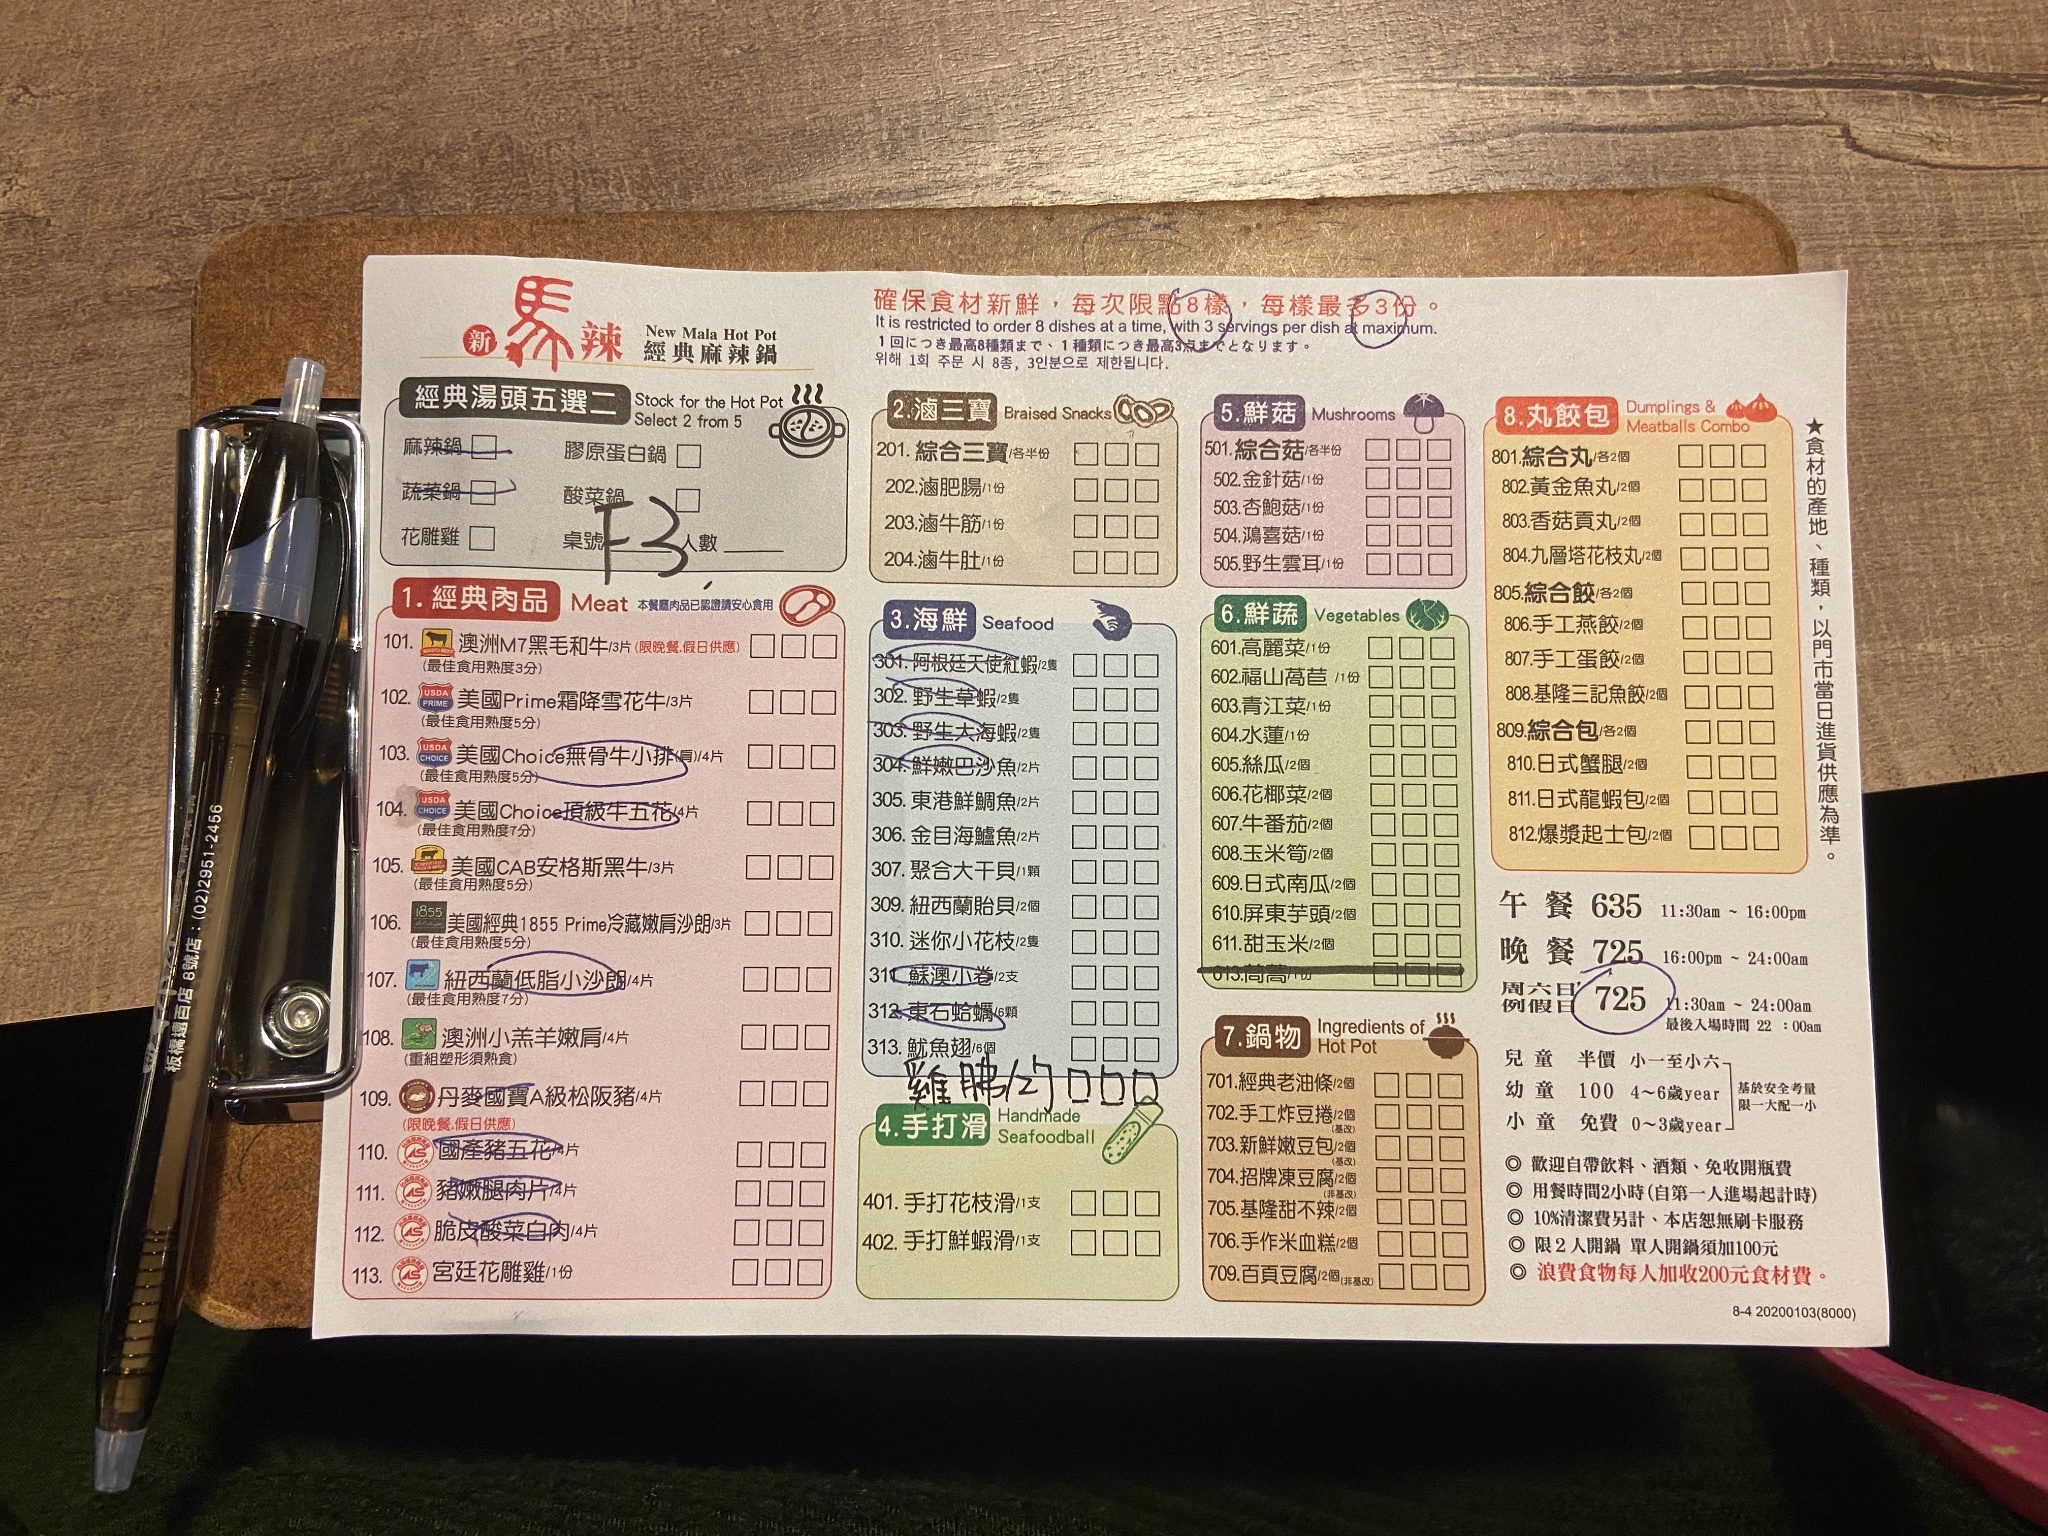 新馬辣
New Mala Hot Pot
經典麻辣鍋
確保食材新鮮，每次限點8樣，每樣最多3份。
It is restricted to order 8 dishes at a time, with 3 servings per dish at maximum.
1回につき最高8種類まで、1種類につき最高3点までとなります。
위해 1회 주문 시 8종, 3인분으로 제한됩니다.
經典湯頭五選二 Stock for the Hot Pot
Select 2 from 5
麻辣鍋 膠原蛋白鍋
蔬菜鍋 酸菜鍋
花雕雞 桌號 F3 人數
1.經典肉品 Meat 本餐廳肉品已認證請安心食用
101. 澳洲M7黑毛和牛/3片(限晚餐.假日供應)
(最佳食用熟度3分)
102. USDA PRIME 美國Prime霜降雪花牛/3片
(最佳食用熟度5分)
103. USDA CHOICE 美國Choice無骨牛小排(肩)/4片
(最佳食用熟度5分)
104. USDA CHOICE 美國Choice頂級牛五花/4片
(最佳食用熟度7分)
105. 美國CAB安格斯黑牛/3片
(最佳食用熟度5分)
106. 1855 美國經典1855 Prime冷藏嫩肩沙朗/3片
(最佳食用熟度5分)
107. 紐西蘭低脂小沙朗/4片
(最佳食用熟度7分)
108. 澳洲小羔羊嫩肩/4片
(重組塑形須熟食)
109. 丹麥國寶A級松阪豬/4片
(限晚餐.假日供應)
110. 國產豬五花/4片
111. 豬嫩腿肉片/4片
112. 脆皮酸菜白肉/4片
113. 宮廷花雕雞/1份
2.滷三寶 Braised Snacks
201.綜合三寶/各半份
202.滷肥腸/1份
203.滷牛筋/1份
204.滷牛肚/1份
3.海鮮 Seafood
301.阿根廷天使紅蝦/2隻
302.野生草蝦/2隻
303.野生大海蝦/2隻
304.鮮嫩巴沙魚/2片
305.東港鮮鯛魚/2片
306.金目海鱸魚/2片
307.聚合大干貝/1顆
309.紐西蘭貽貝/2個
310.迷你小花枝/2隻
311.蘇澳小卷/2支
312.東石蛤蠣/6顆
313.魷魚翅/6個
雞 肺/幻 口口口
4.手打滑 Handmade
Seafoodball
401.手打花枝滑/1支
402.手打鮮蝦滑/1支
5.鮮菇 Mushrooms
501.綜合菇/各半份
502.金針菇/1份
503.杏鮑菇/1份
504.鴻喜菇/1份
505.野生雲耳/1份
6.鮮蔬 Vegetables
601.高麗菜/1份
602.福山萵苣/1份
603.青江菜/1份
604.水蓮/1份
605.絲瓜/2個
606.花椰菜/2個
607.牛番茄/2個
608.玉米筍/2個
609.日式南瓜/2個
610.屏東芋頭/2個
611.甜玉米/2個
613.茼蒿/1份
7.鍋物 Ingredients of
Hot Pot
701.經典老油條/2個
702.手工炸豆捲/2個
(基改)
703.新鮮嫩豆包/2個
(基改)
704.招牌凍豆腐/2個
(非基改)
705.基隆甜不辣/2個
706.手作米血糕/2個
709.百頁豆腐/2個(非基改)
8.丸餃包 Dumplings &
Meatballs Combo
801.綜合丸/各2個
802.黃金魚丸/2個
803.香菇貢丸/2個
804.九層塔花枝丸/2個
805.綜合餃/各2個
806.手工燕餃/2個
807.手工蛋餃/2個
808.基隆三記魚餃/2個
809.綜合包/各2個
810.日式蟹腿/2個
811.日式龍蝦包/2個
812.爆漿起士包/2個
★食材的產地、種類，以門市當日進貨供應為準。
午餐 635 11:30am ~ 16:00pm
晚餐 725 16:00pm ~ 24:00am
周六日
例假日 725 11:30am ~ 24:00am
最後入場時間 22：00am
兒童 半價 小一至小六
幼童 100 4~6歲year
小童 免費 0~3歲year
基於安全考量
限一大配一小
◎ 歡迎自帶飲料、酒類、免收開瓶費
◎ 用餐時間2小時(自第一人進場起計時)
◎ 10%清潔費另計、本店恕無刷卡服務
◎ 限２人開鍋 單人開鍋須加100元
◎ 浪費食物每人加收200元食材費。
8-4 20200103(8000)
板橋遠百店 8號店：(02)2951-2456